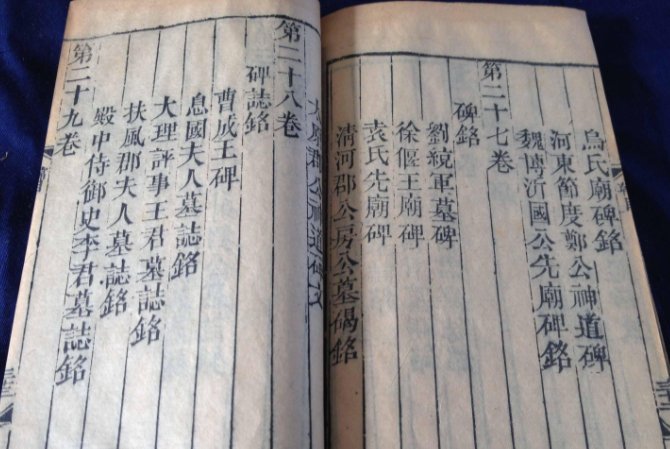 烏氏廟碑銘
河東節度鄭公神道碑
魏博沂國公先廟碑銘
第二十七卷
碑銘
劉統軍墓碑
徐偃王廟碑
袁氏先廟碑
清河郡公房公墓碣銘
太原郡公神道碑文
第二十八卷
碑誌銘
曹成王碑
息國夫人墓誌銘
大理評事王君墓誌銘
扶風郡夫人墓誌銘
殿中侍御史李君墓誌銘
第二十九卷